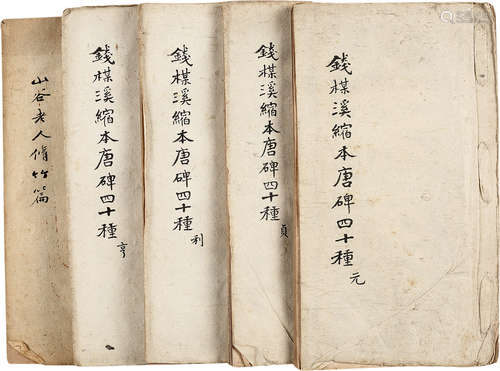 錢楳溪縮本唐碑四十種 元
錢楳溪縮本唐碑四十種 貞
錢楳溪縮本唐碑四十種 利
錢楳溪縮本唐碑四十種 亨
山谷老人脩竹篇